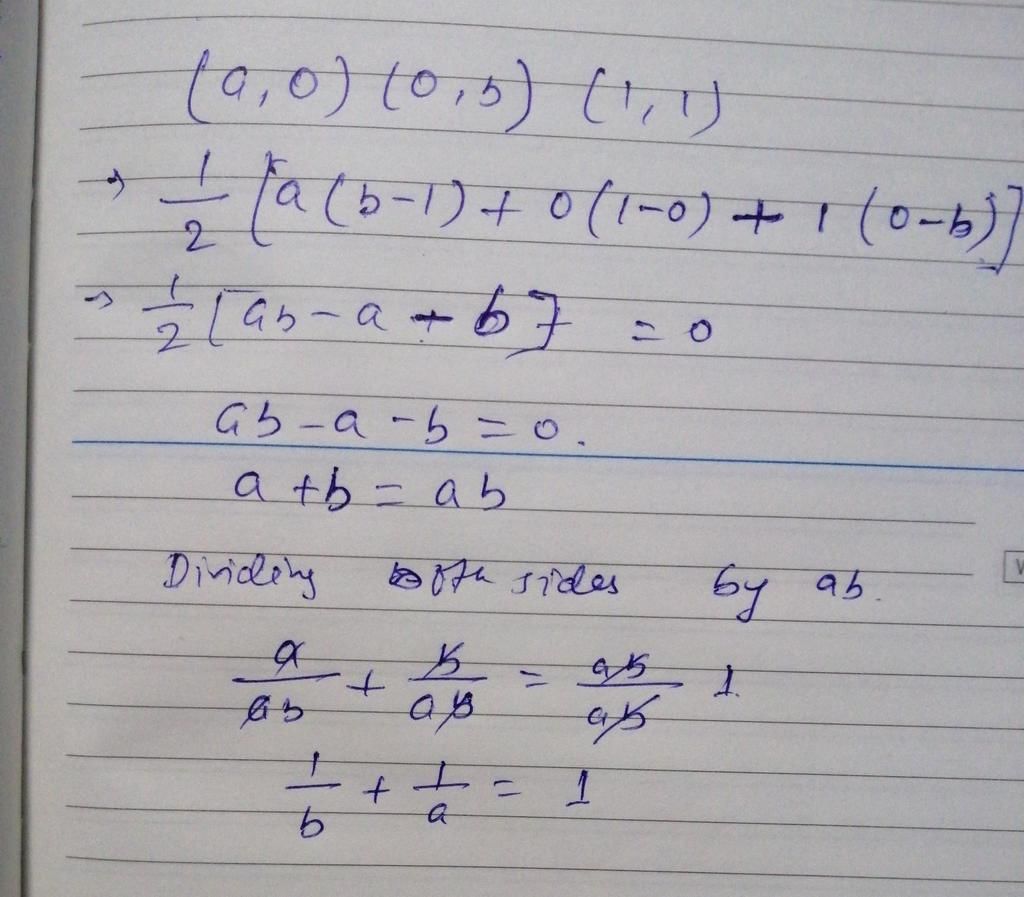 (a,0) (0,b) (1,1)
→ 1/2 [a(b-1) + 0(1-0) + 1(0-b)]
→ 1/2 [ab - a + b] = 0
ab - a - b = 0.
a + b = ab
Dividing both sides by ab.
a/ab + b/ab = ab/ab 1
1/b + 1/a = 1